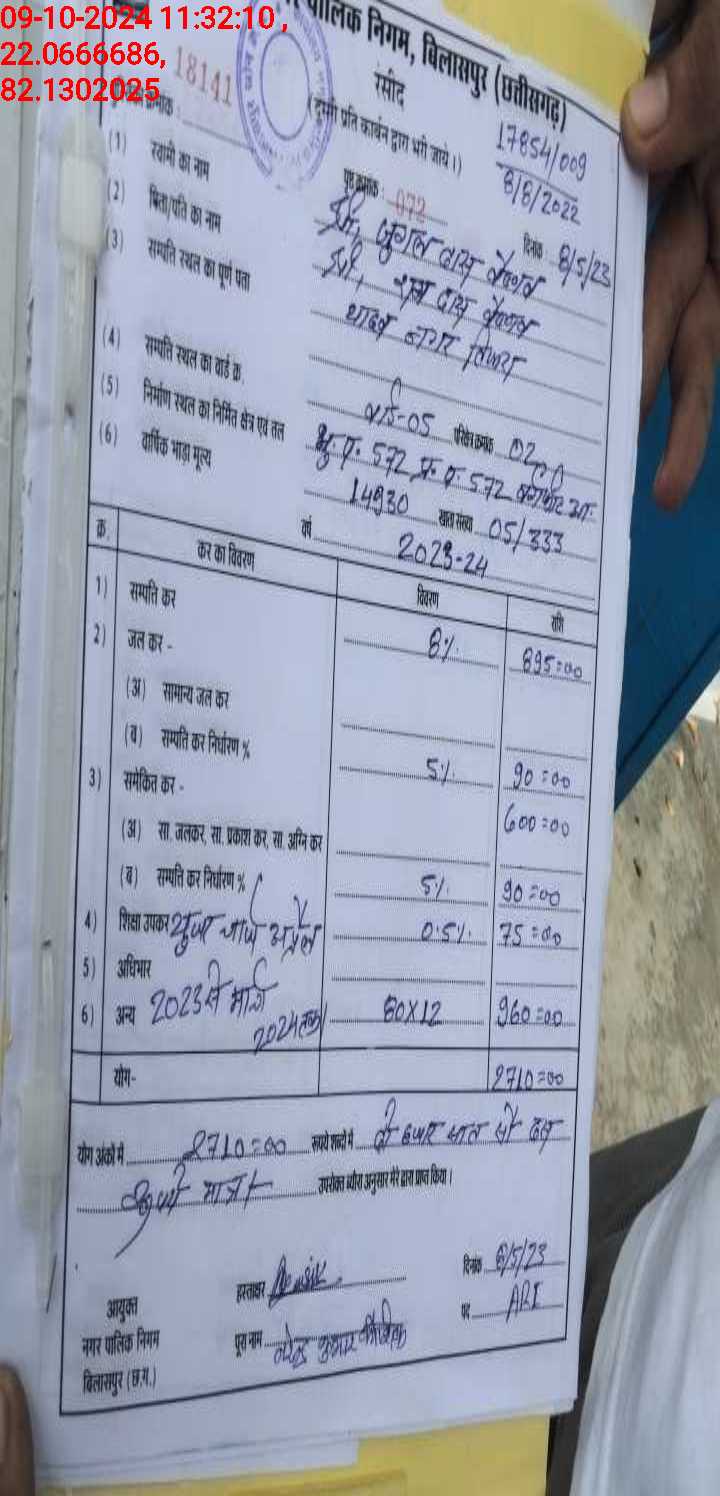 09-10-2024 11:32:10 ,
22.0666686,
82.1302025
पालिक निगम, बिलासपुर (छत्तीसगढ़)
रसीद
(दूसरी प्रति कार्बन द्वारा भरी जाये।)
18141
17854/009
8/8/2022
पृष्ठ क्रमांक : 072
दिनांक 8/5/23
(1) स्वामी का नाम श्री, जुगल दास वैष्णव
(2) पिता/पति का नाम श्री, राम दास वैष्णव
(3) सम्पति स्थल का पूर्ण पता यादव नगर तिफरा
(4) सम्पति स्थल का वार्ड क्र. वार्ड-05 परिक्षेत्र क्रमांक 02
(5) निर्माण स्थल का निर्मित क्षेत्र एवं तल भु. प. 572 प्र. प. 572
(6) वार्षिक भाड़ा मूल्य 14930 खाता संख्या 05/333
वर्ष 2023-24
क्र. कर का विवरण विवरण राशि
1) सम्पति कर 8% 895=00
2) जल कर -
(अ) सामान्य जल कर
(ब) सम्पति कर निर्धारण % 5% 90=00
3) समेकित कर - 600=00
(अ) सा. जलकर, सा. प्रकाश कर, सा. अग्नि कर
(ब) सम्पति कर निर्धारण % 5% 90=00
4) शिक्षा उपकर 0.5% 75=00
5) अधिभार
6) अन्य 2023 से मार्च 80X12 960=00
2024 तक
योग- 2710=00
योग अंकों में 2710=00 रूपये शब्दों में दो हजार सात सौ दस
रूपये मात्र उपरोक्त ब्यौरा अनुसार मेरे द्वारा प्राप्त किया।
आयुक्त
नगर पालिक निगम
बिलासपुर (छ.ग.)
हस्ताक्षर
दिनांक 8/5/23
पूरा नाम नरेन्द्र कुमार कौशिक
पद ARI